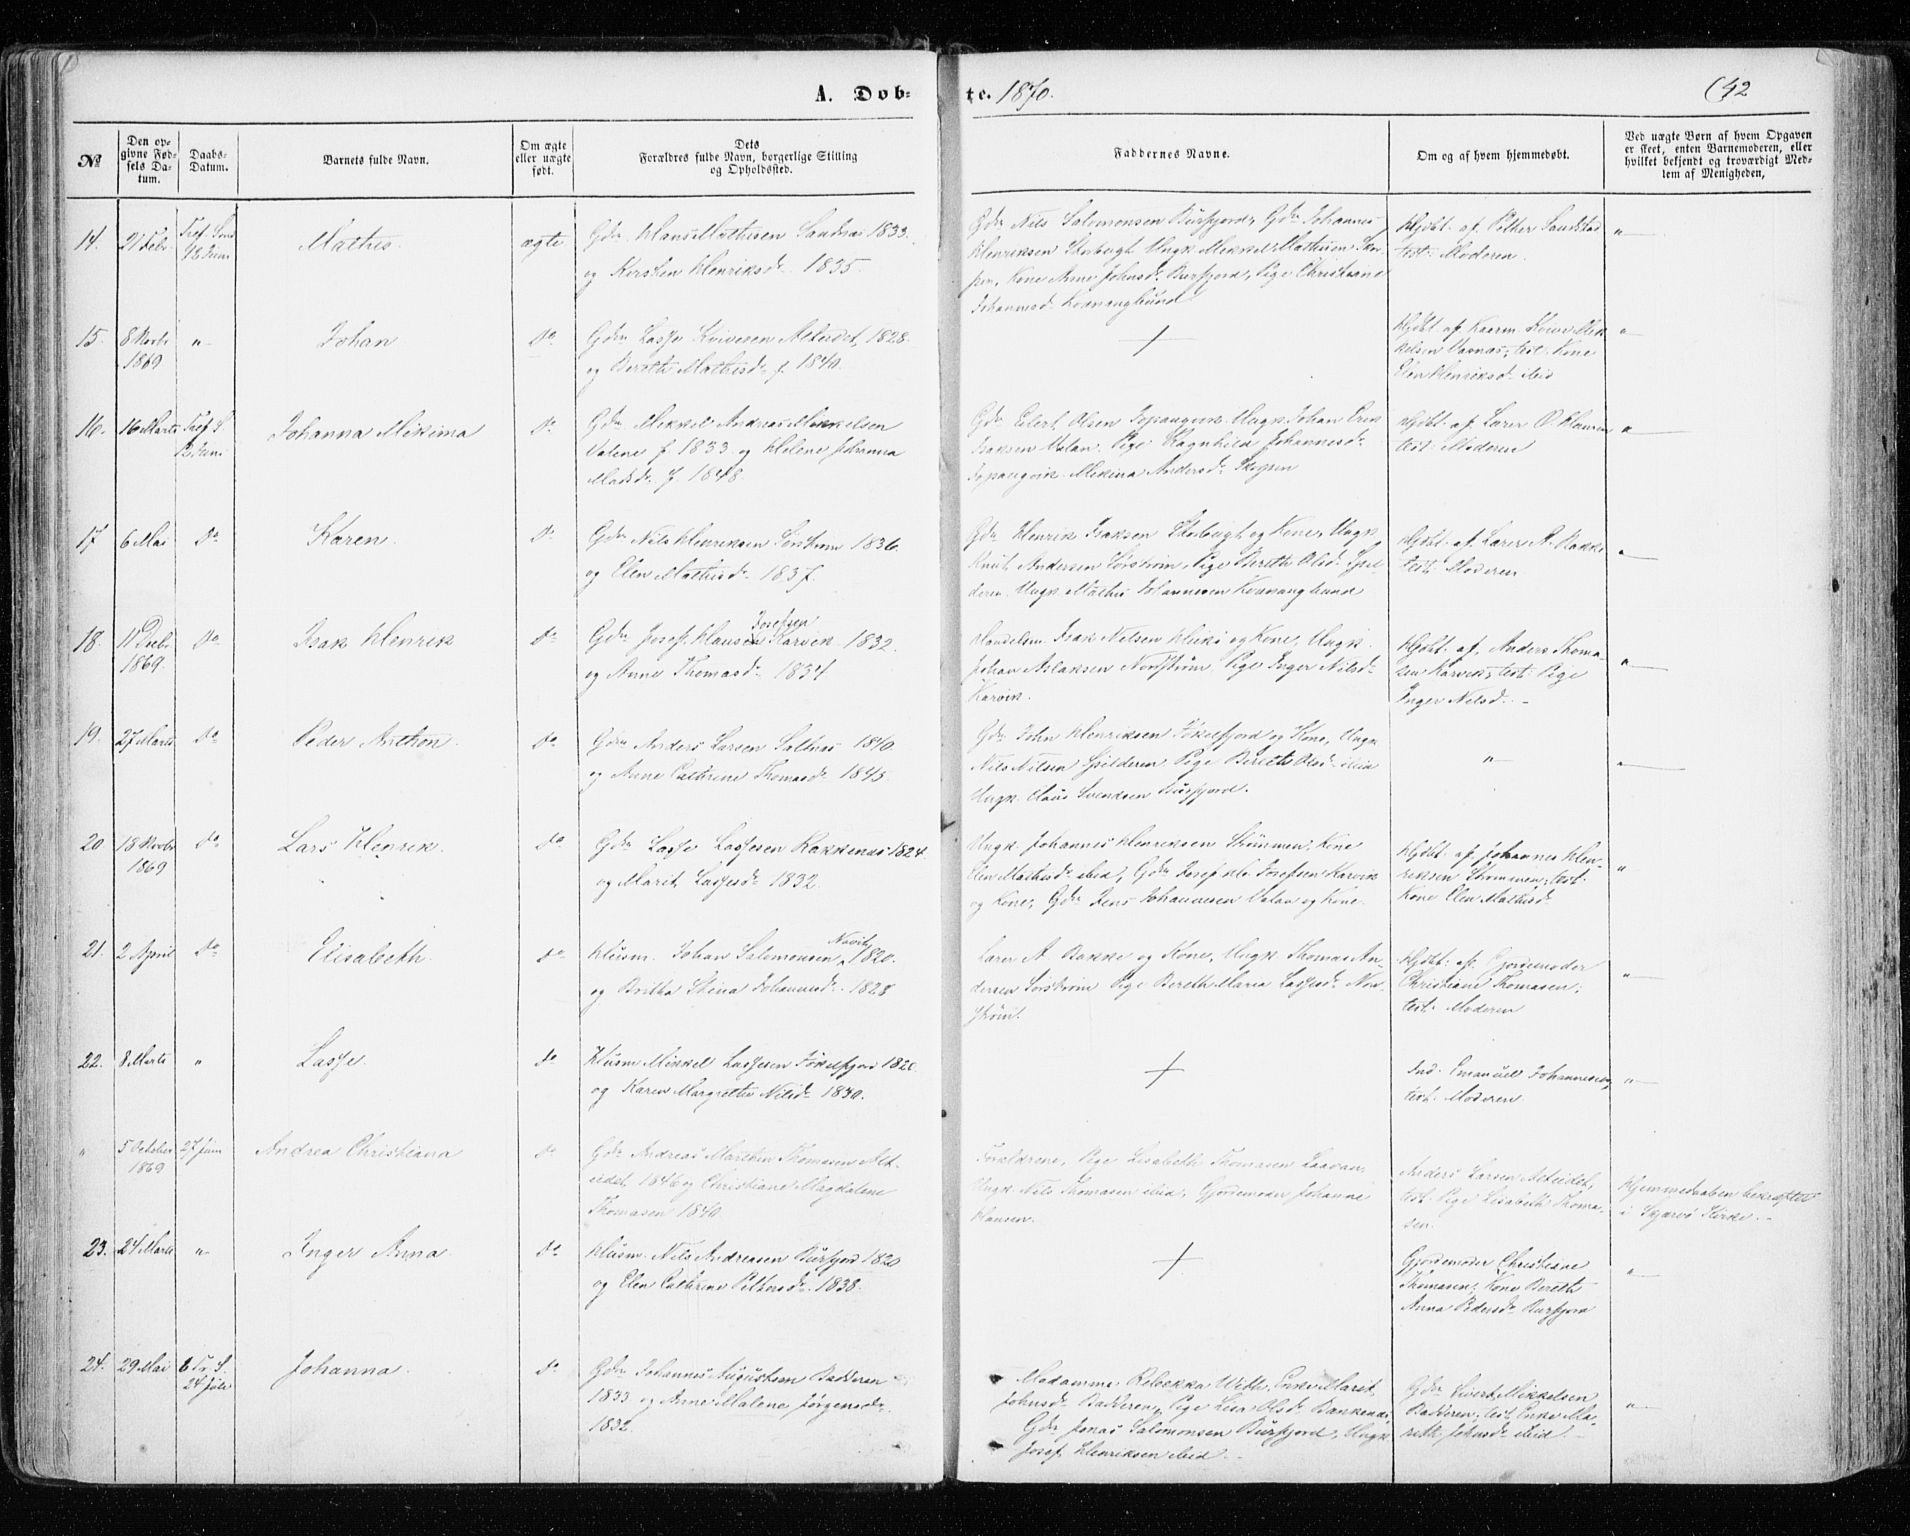 A. Døb-
te. 1870.
42
No
Den op-
givne Fød-
sels Da-
tum.
Daabs-
Datum.
Barnets fulde Navn.
Om ægte
eller uægte
født.
Dets
Forældres fulde Navn, borgerlige Stilling
og Opholdssted.
Faddernes Navne.
Om og af hvem hjemmedøbt.
Ved uægte Børn af hvem Opgaven
er skeet, enten Barnemoderen, eller
hvilket bekjendt og troværdigt Med-
lem af Menigheden,
14.
21 Febr.
Tref. Sønd
12 Juni
Mathis.
ægte
Gdm Hans Mathisen Sandnæs 1833.
og Kirsten Henriksd. 1835.
Gdm Nils Salomonsen Burfjord, Gdm Johannes
Henriksen Storbugt Ungk Mikkel Mathisen
Kone Anne Johnsd. Burfjord, Pige Christiane
Johannesd. Kvænangbund
Hjdbt. af Pether Sandstad
test: Moderen.
"
15.
8 Novbr
1869
"
Johan
Do
Gdm Lasse Kvivesen Alteidet 1828.
og Bereth Mathisd. f. 1840.
+
Hjdbt. af Kvæn
test. Kone
Elen Henriksd. ibid
"
16.
16 Marts
Tref. S.
12 Juni
Johanna Mikima
Do
Gdm Mikkel Andreas Mikkelsen
Valene f. 1833 og Helene Johanna
Madsd. f. 1848.
Gdm Eilert Olsen Spangvik Ungk. Johan Erik
Isaksen Valan. Pige Ragnhild Johannesd.
Spangvik. Mikina Andersd.
Hjdbt. af Lærer O. Hansen
test: Moderen
"
17
6 Mai
Do
Karen.
Do
Gdm Nils Henriksen Sørstrøm 1836.
og Elen Mathisd. 1837.
Gdm Henrik Isaksen Storbugt og Kone, Ungk
Knut Andersen Sørstrøm. Pige Bereth Olsd. Spil-
deren. Ungk. Mathis Johannesen Kvænangbund
Hjdbt. af Lærer A. Bakke
test: Moderen
"
18.
11 Decbr.
1869.
Do
Isak Henrik
Do
Josefsen
Gdm Josef Hansen Karvik 1832.
og Anne Thomasd. 1834.
Handelsm. Isak Nilsen og Kone, Ungk.
Johan Aslaksen Nordstrøm. Pige Inger Nilsd.
Karvik.
Hjdbt. af Anders Thoma-
sen Karvik; test: Pige
Inger Nilsd.
"
19.
27 Marts
Do
Peder Anthon.
Do
Gdm Anders Larsen Saltnæs 1840
og Anne Cathrine Thomasd. 1845
Gdm John Henriksen Jøkelfjord og Kone, Ungk
Nils Nilsen Spilderen Pige Bereth Olsd. ibid
Ungk. Claus Svendsen Burfjord.
"
"
20
18 Novbr
1869
Do
Lars Henrik.
Do
Gdm Lasse Lassesen Rakkenæs 1824.
og Marit Lassesd. 1832.
Ungk Johannes Henriksen Strømmen, Kone
Elen Mathisd. ibid, Gdm Josef H. Josefsen Karvik
og Kone, Gdm Jens Johannesen Valan og Kone.
Hjdbt. af Johannes Hen-
riksen Strømmen; test.
Kone Elen Mathisd.
"
21.
2 April
Do
Elisabeth.
Do
Navit
Husm. Johan Salomonsen 1820.
og Britha Stina Johannesd. 1828
Lærer A. Bakke og Kone, Ungk Thomas An-
dersen Sørstrøm Pige Bereth Maria Lassesd. Nor-
strøm.
Hjdbt. af Gjordemoder
Christiane Thomasen;
test: Moderen
"
22.
8 Marts
"
Lasse.
Do
Husm Mikkel Lassesen Jøkelfjord 1820
og Karen Margrethe Nilsd. 1830.
+
Ind. Emanuel Johannesen,
test: Moderen
"
"
5 October
1869
27 Juni
Andrea Christiana
Do
Gdm Andreas Marthin Thomasen Alt-
eidet 1846 og Christiane Magdalene
Thomasen 1840.
Forældrene, Pige Lisabeth Thomasen Laavan,
Ungk. Nils Thomasen ibid, Gjordemoder Johanne
Hansen.
Anders Larsen Alteidet,
test. Pige Lisabeth Thoma-
sen.
Hjemmedaaben bekræftet
i Skjærvø Kirke.
23.
24 Marts
"
Inger Anna
Do
Husm. Nils Andreasen Burfjord 1820
og Elen Cathrine Pethersd. 1838.
+
Gjordemoder Christiane
Thomasen; Kone Bereth
Anna Pedersd. Burfjord
"
24.
29 Mai
6 Tr. S.
24 Juli
Johanna.
Do
Gdm Johannes Augustsen Badderen
1833 og Anne Malene Jørgensd.
1832.
Madamme Rebekka With, Enke Marit
Johnsd. Badderen, Pige Lisa Olsd.
Gdm Jonas Salomonsen Burfjord, Ungk
Josef Henriksen ibid.
Gdm Sivert Mikkelsen
Badderen; test. Enke Ma-
reth Johnsd. ibid.
"